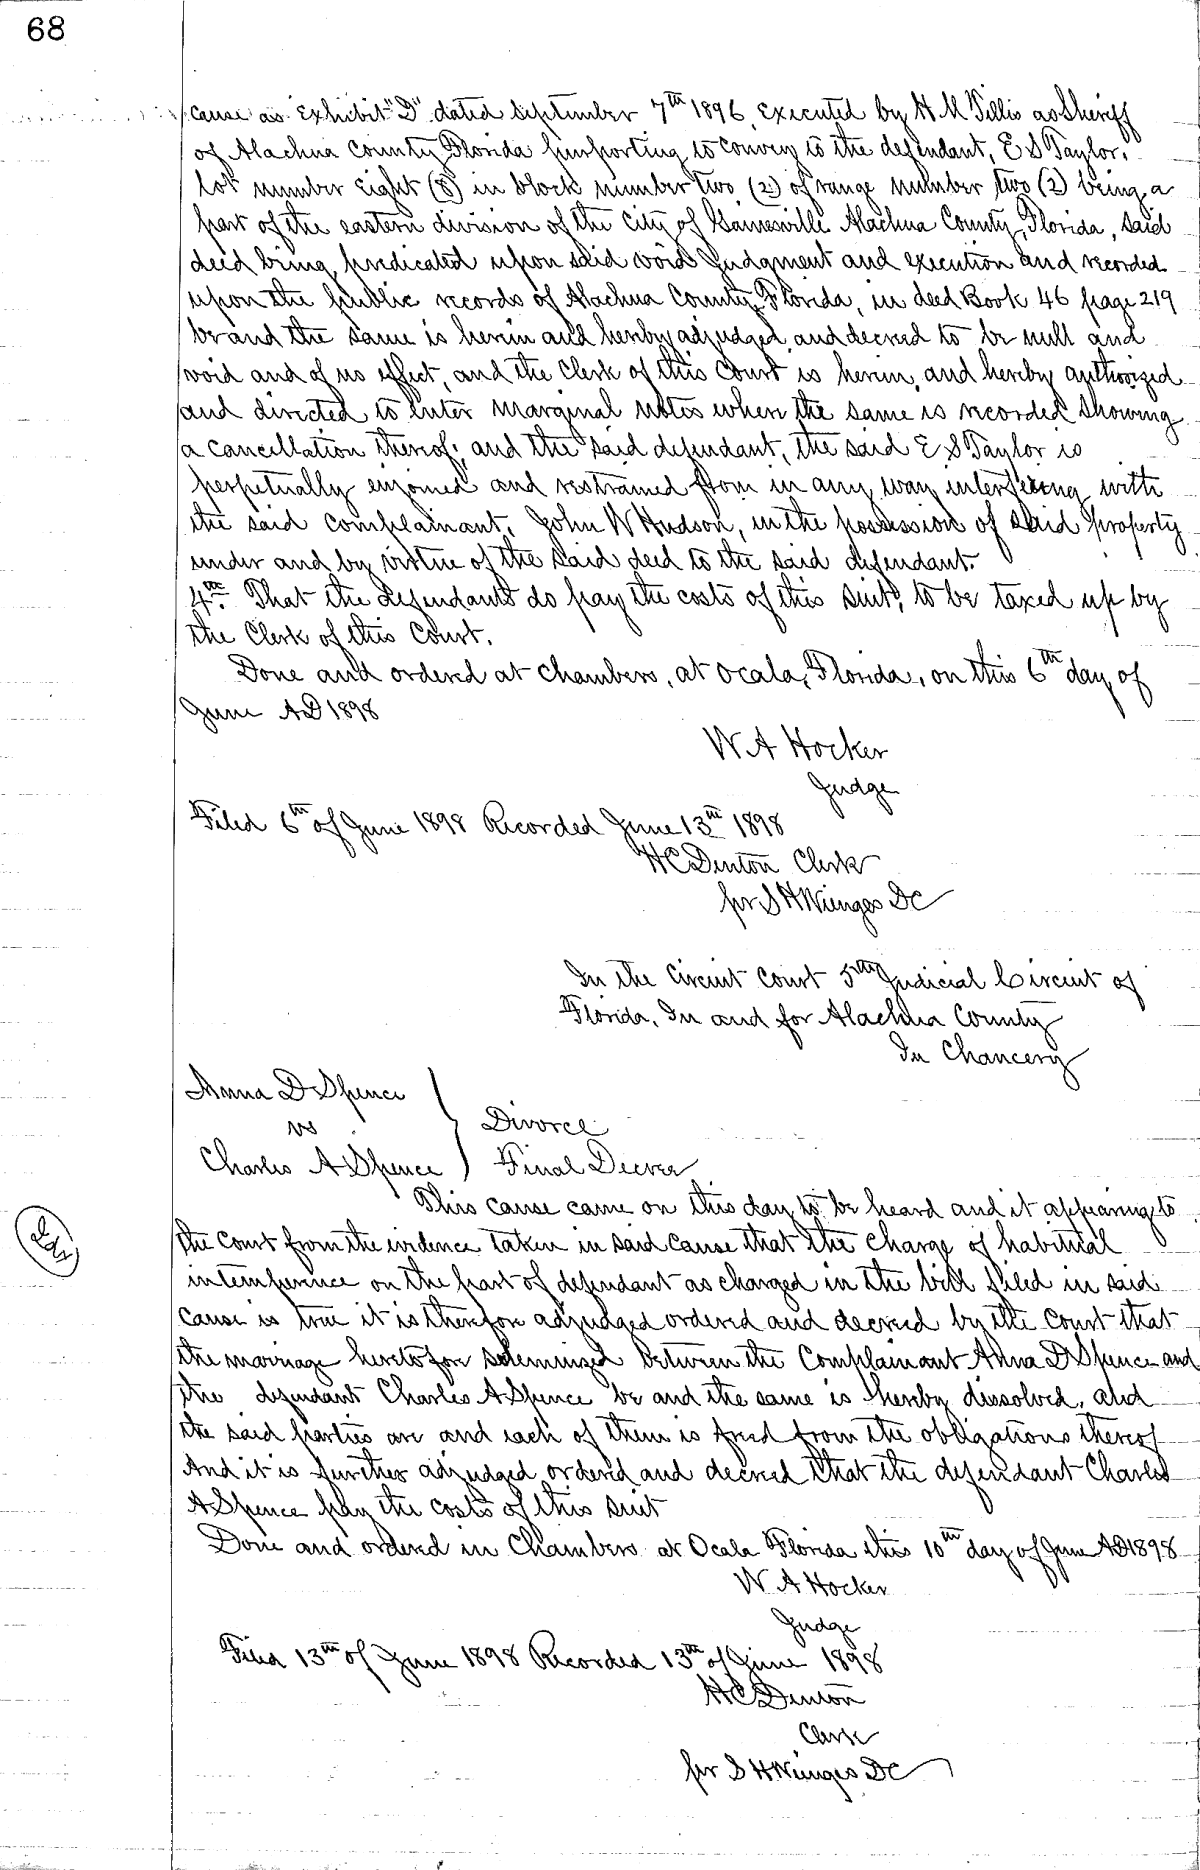 68
cause as Exhibit "D" dated September 7th 1896, executed by H M Tillis as Sheriff
of Alachua County Florida purporting to convey to the defendant, E S Taylor,
lot number eight (8) in block number two (2) of range number two (2) being a
part of the eastern division of the City of Gainesville Alachua County, Florida, said
deed being predicated upon said void Judgment and execution and recorded
upon the public records of Alachua County Florida, in deed Book 46 page 219
be and the same is herein and hereby adjudged and decreed to be null and
void and of no effect, and the Clerk of this Court is herein, and hereby authorized
and directed to enter marginal notes where the same is recorded showing
a cancellation thereof; and the said defendant, the said E S Taylor is
perpetually enjoined and restrained from in any way interfering with
the said complainant, John W Hudson, in the possession of said property
under and by virtue of the said deed to the said defendant.
4th. That the defendants do pay the costs of this suit, to be taxed up by
the Clerk of this Court.
Done and ordered at Chambers, at Ocala, Florida, on this 6th day of
June AD 1898
W A Hocker
Judge
Filed 6th of June 1898 Recorded June 13th 1898
H C Denton Clerk
per S H Wienges DC
In the Circuit Court 5th Judicial Circuit of
Florida, In and for Alachua County
In Chancery
Anna D Spence
vs
Divorce
Charles A Spence Final Decree
This cause came on this day to be heard and it appearing to
the Court from the evidence taken in said cause that the charge of habitual
intemperance on the part of defendant as charged in the bill filed in said
cause is true it is therefore adjudged ordered and decreed by the Court that
the marriage heretofore solemnised between the Complainant Anna D Spence and
the defendant Charles A Spence be and the same is hereby dissolved, and
the said parties are and each of them is freed from the obligations thereof
And it is further adjudged ordered and decreed that the defendant Charles
A Spence pay the costs of this suit
Done and ordered in Chambers at Ocala Florida this 10th day of June AD 1898
W A Hocker
Judge
Filed 13th of June 1898 Recorded 13th of June 1898
H C Denton
Clerk
per S H Wienges DC